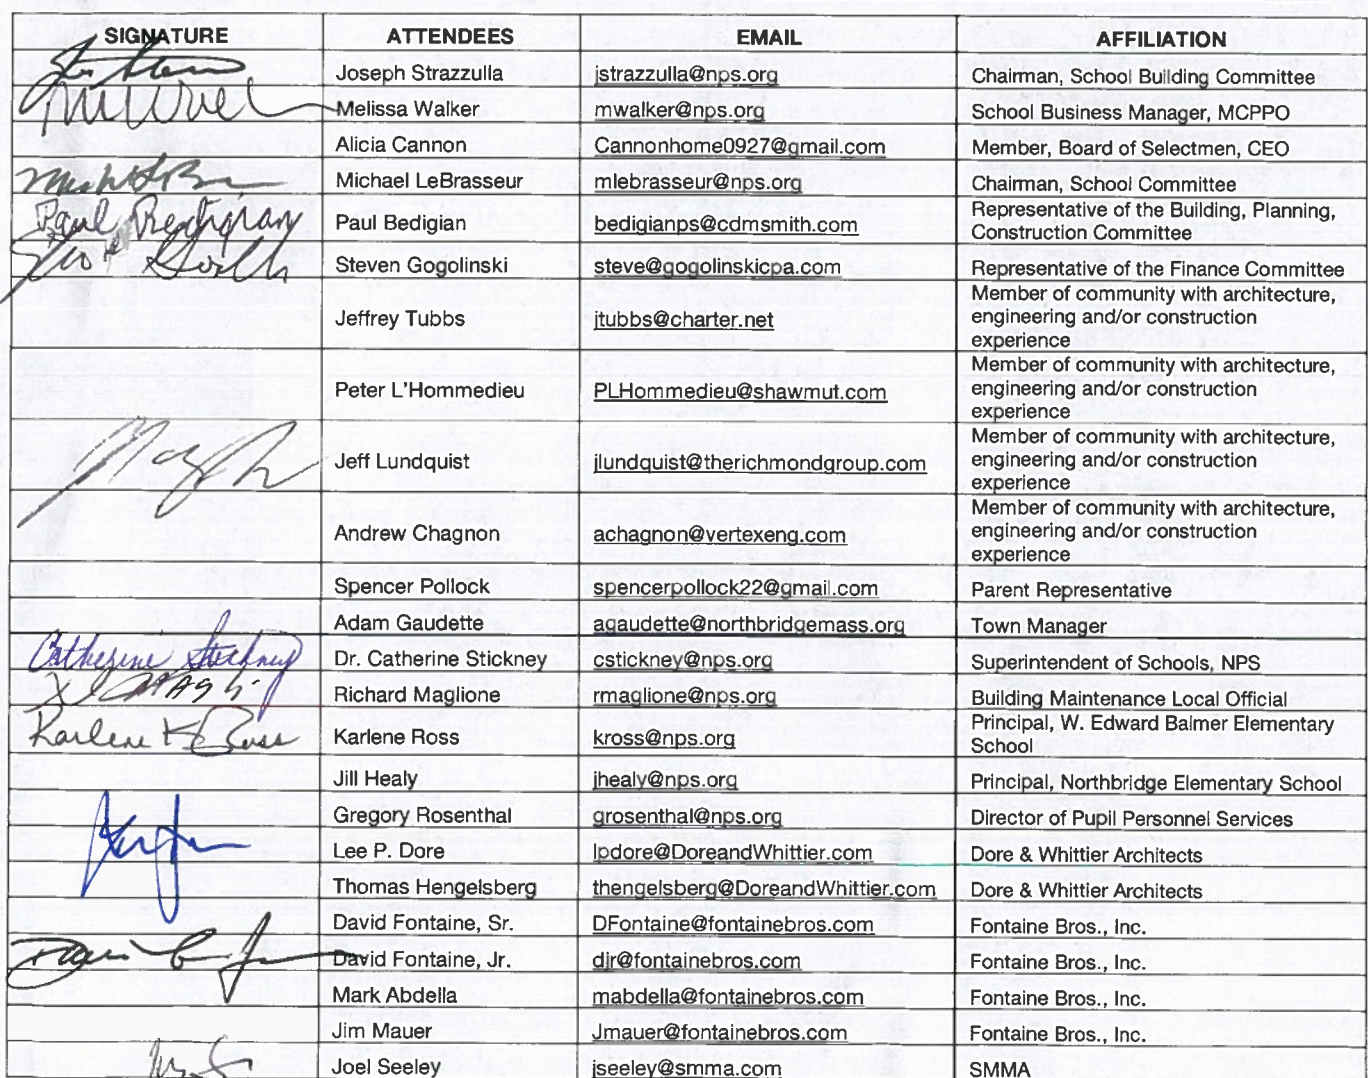 SIGNATURE ATTENDEES EMAIL AFFILIATION
Joseph Strazzulla jstrazzulla@nps.org Chairman, School Building Committee
Melissa Walker mwalker@nps.org School Business Manager, MCPPO
Alicia Cannon Cannonhome0927@gmail.com Member, Board of Selectmen, CEO
Michael LeBrasseur mlebrasseur@nps.org Chairman, School Committee
Paul Bedigian Paul Bedigian bedigianps@cdmsmith.com Representative of the Building, Planning,
Construction Committee
Steven Gogolinski steve@gogolinskicpa.com Representative of the Finance Committee
Jeffrey Tubbs jtubbs@charter.net Member of community with architecture,
engineering and/or construction
experience
Peter L'Hommedieu PLHommedieu@shawmut.com Member of community with architecture,
engineering and/or construction
experience
Jeff Lundquist jlundquist@therichmondgroup.com Member of community with architecture,
engineering and/or construction
experience
Andrew Chagnon achagnon@vertexeng.com Member of community with architecture,
engineering and/or construction
experience
Spencer Pollock spencerpollock22@gmail.com Parent Representative
Adam Gaudette agaudette@northbridgemass.org Town Manager
Catherine Stickney Dr. Catherine Stickney cstickney@nps.org Superintendent of Schools, NPS
Richard Maglione rmaglione@nps.org Building Maintenance Local Official
Karlene K Ross Karlene Ross kross@nps.org Principal, W. Edward Balmer Elementary
School
Jill Healy jhealy@nps.org Principal, Northbridge Elementary School
Gregory Rosenthal grosenthal@nps.org Director of Pupil Personnel Services
Lee P. Dore lpdore@DoreandWhittier.com Dore & Whittier Architects
Thomas Hengelsberg thengelsberg@DoreandWhittier.com Dore & Whittier Architects
David Fontaine, Sr. DFontaine@fontainebros.com Fontaine Bros., Inc.
David Fontaine, Jr. djr@fontainebros.com Fontaine Bros., Inc.
Mark Abdella mabdella@fontainebros.com Fontaine Bros., Inc.
Jim Mauer Jmauer@fontainebros.com Fontaine Bros., Inc.
Joel Seeley jseeley@smma.com SMMA